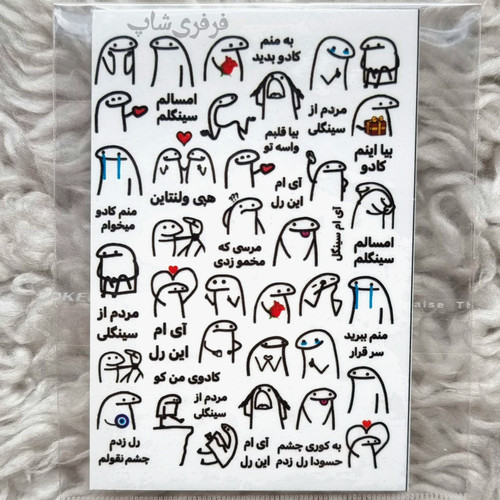 فرفری شاپ
به منم
کادو بدید
امسالم
سینگلم
مردم از
سینگلی
بیا قلبم
واسه تو
بیا اینم
کادو
هپی ولنتاین
آی ام
این رل
منم کادو
میخوام
مرسی که
مخمو زدی
آی ام سینگل
امسالم
سینگلم
مردم از
سینگلی
آی ام
این رل
منم ببرید
سر قرار
کادوی من کو
مردم از
سینگلی
رل زدم
چشم نقولم
آی ام
این رل
به کوری چشم
حسودا رل زدم